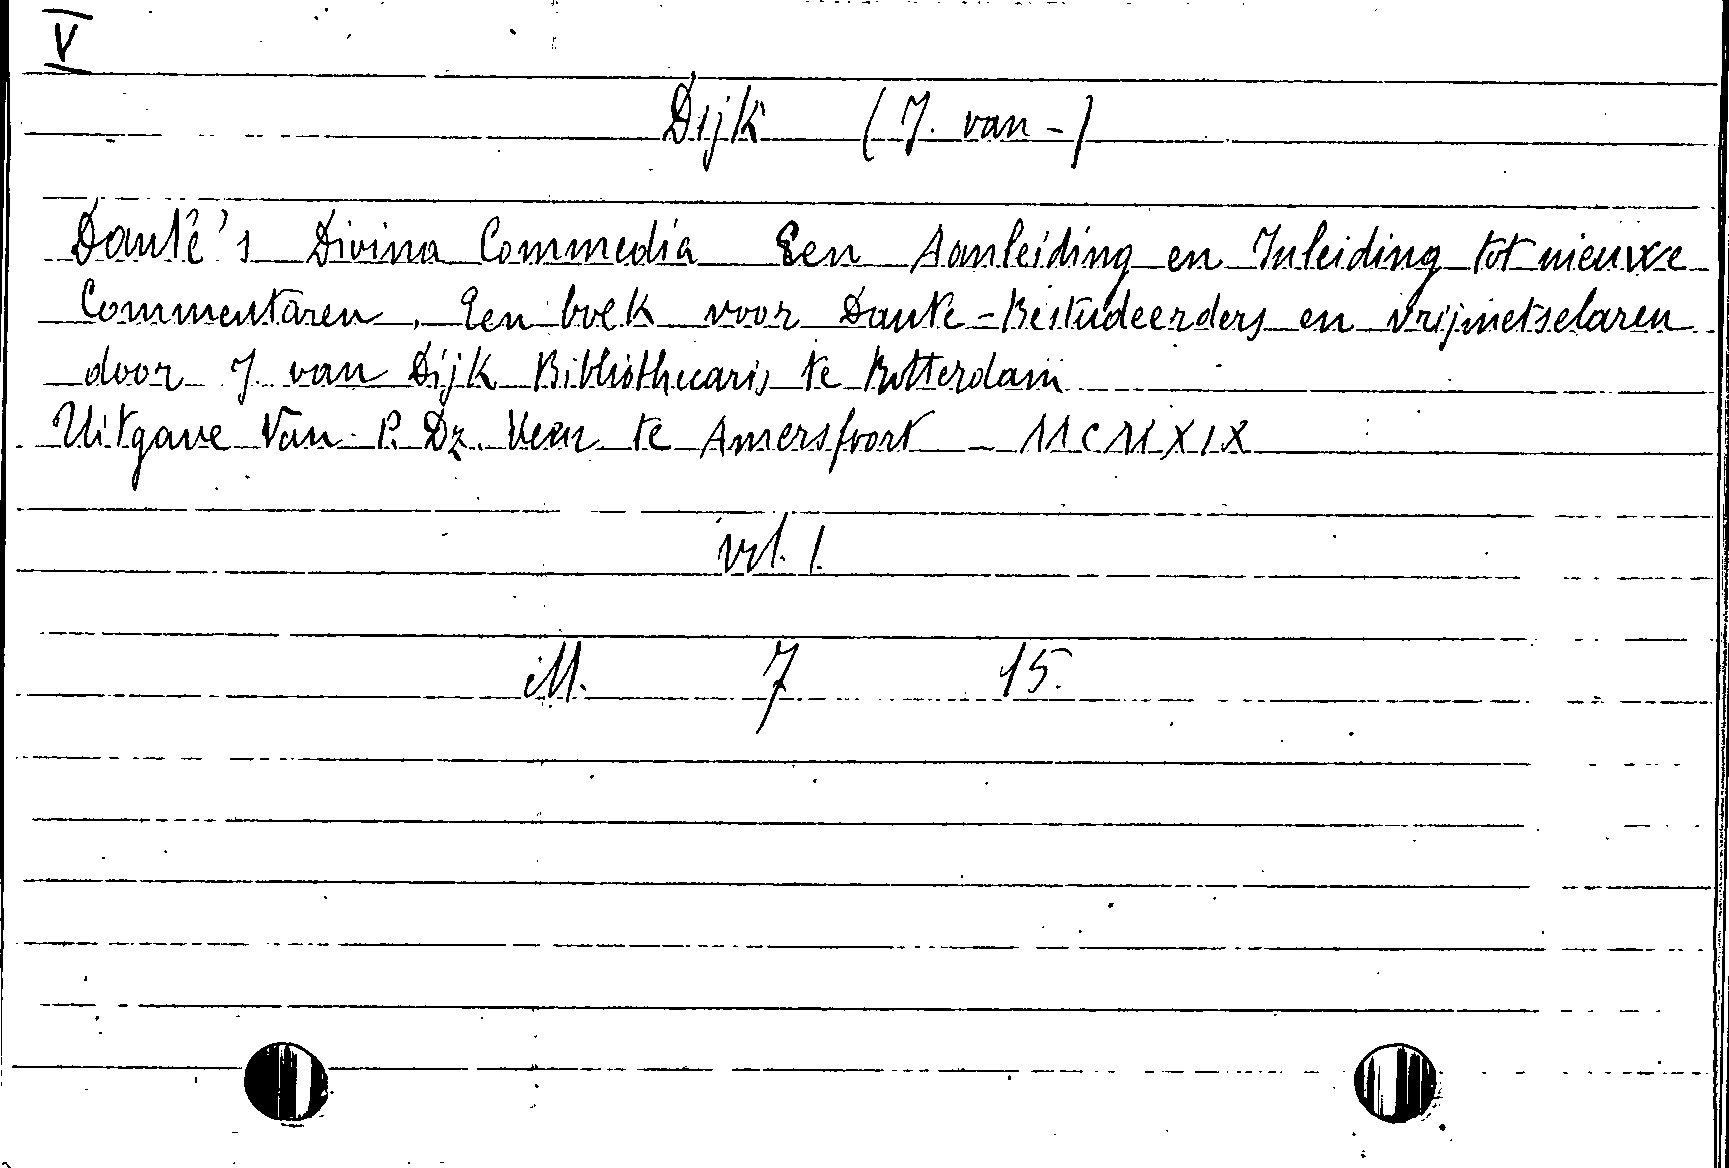 V
Dijk (J. van -)
Dante's Divina Commedia Een Aanleiding en Inleiding tot nieuwe
Commentaren. Een boek voor Dante-Bestudeerders en vrijmetselaren
door J. van Dijk Bibliothecaris te Rotterdam
Uitgave Van P. Dz. Veen te Amersfoort - MCMXIX
vol. 1.
ill. 7 15.